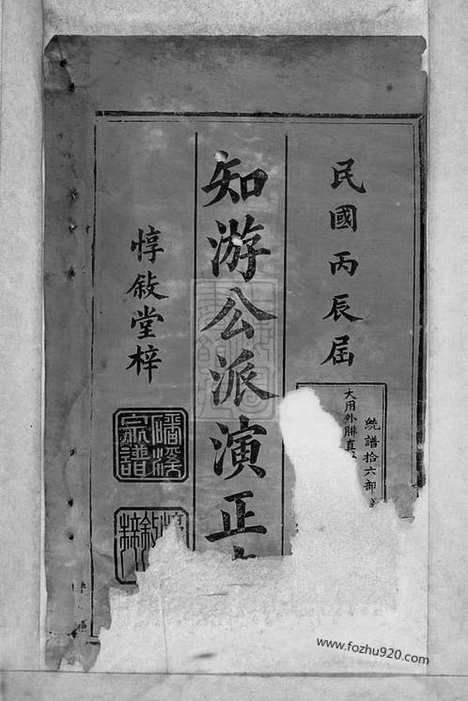 民國丙辰届
統譜拾六部
大用外聯真
知游公派演正
惇敍堂梓
磻溪宗譜
www.fozhu920.com